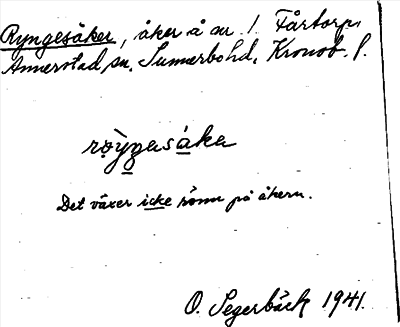 Ryngesåker, åker å nr 1 Fårtorp,
Annerstad sn. Sunnerbo hd. Kronob. l.
røỳŋasåka
Det växer icke rönn på åkern.
O. Segerbäck 1941.